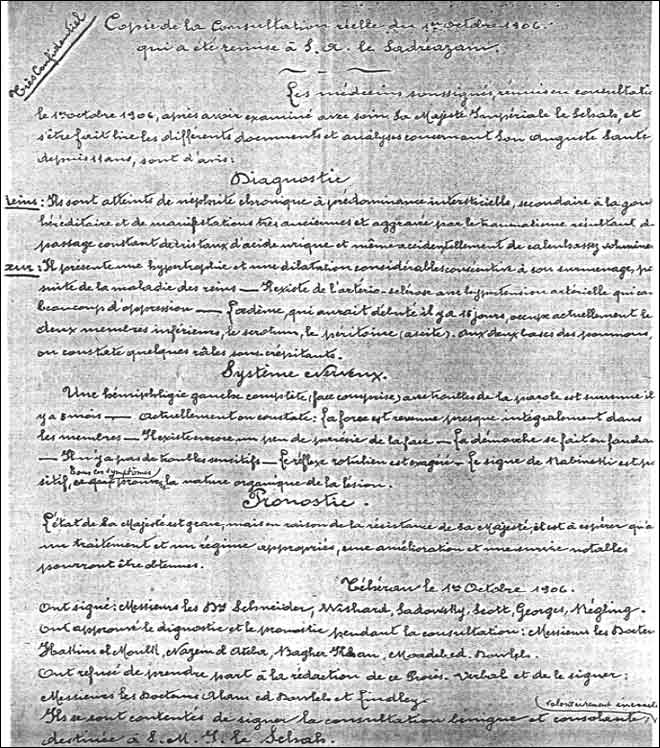 Très Confidentiel
Copie de la Consultation réelle du 1er octobre 1906.
qui a été remise à S. A. le Sadreazam.
Les médecins soussignés, réunis en consultatio
le 1er octobre 1906, après avoir examiné avec soin Sa Majesté Impériale le Schah, et
s'être fait lire les différents documents et analyses concernant Son Auguste Santé
depuis 11 ans, sont d'avis:
Diagnostic
Reins: Ils sont atteints de néphrite chronique à prédominance intersticielle, secondaire à la gou
héréditaire et de manifestations très anciennes et aggravée par le traumatisme résultant d
passage constant de cristaux d'acide urique et même accidentellement de calculs assez volumine
œur: Il présente une hypertrophie et une dilatation considérables consécutives à son surmenage, pa
suite de la maladie des reins — Il existe de l'artério-sclérose avec hypertension artérielle qui ca
beaucoup d'oppression — L'œdème, qui aurait débuté il y a 15 jours, occupe actuellement le
deux membres inférieurs, le scrotum, le péritoine (ascite). Aux deux bases des poumons,
on constate quelques râles sous-crépitants.
Système Nerveux.
Une hémiplégie gauche complète (face comprise) avec troubles de la parole est survenue il
y a 5 mois — Actuellement on constate: La force est revenue presque intégralement dans
les membres — Il existe encore un peu de parésie de la face — La démarche se fait en fauchan
— Il n'y a pas de troubles sensitifs — Le réflexe rotulien est exagéré — Le signe de Babinski est po
Tous les symptômes
sitif, ce qui prouve la nature organique de la lésion.
Pronostic.
L'état de Sa Majesté est grave, mais en raison de la résistance de Sa Majesté, il est à espérer qu'a
un traitement et un régime appropriés, une amélioration et une survie notables
pourront être obtenues.
Téhéran le 1er Octobre 1906.
Ont signé: Messieurs les Drs Schneider, Wishard, Sadovsky, Scott, Georges, Négling.
Ont approuvé le dignostic et le pronostic pendant la consultation: Messieurs les Docteu
Hakim el Moulk, Nazem el Ateba, Bagher Khan, Moadeb ed. Dowleh.
Ont refusé de prendre part à la rédaction de ce Procès-Verbal et de le signer:
Messieurs les Docteurs Alam ed Dowleh et Lindley
volontairement
Ils se sont contentés de signer la consultation bénigne et consolante,
destinée à S. M. I. le Schah.